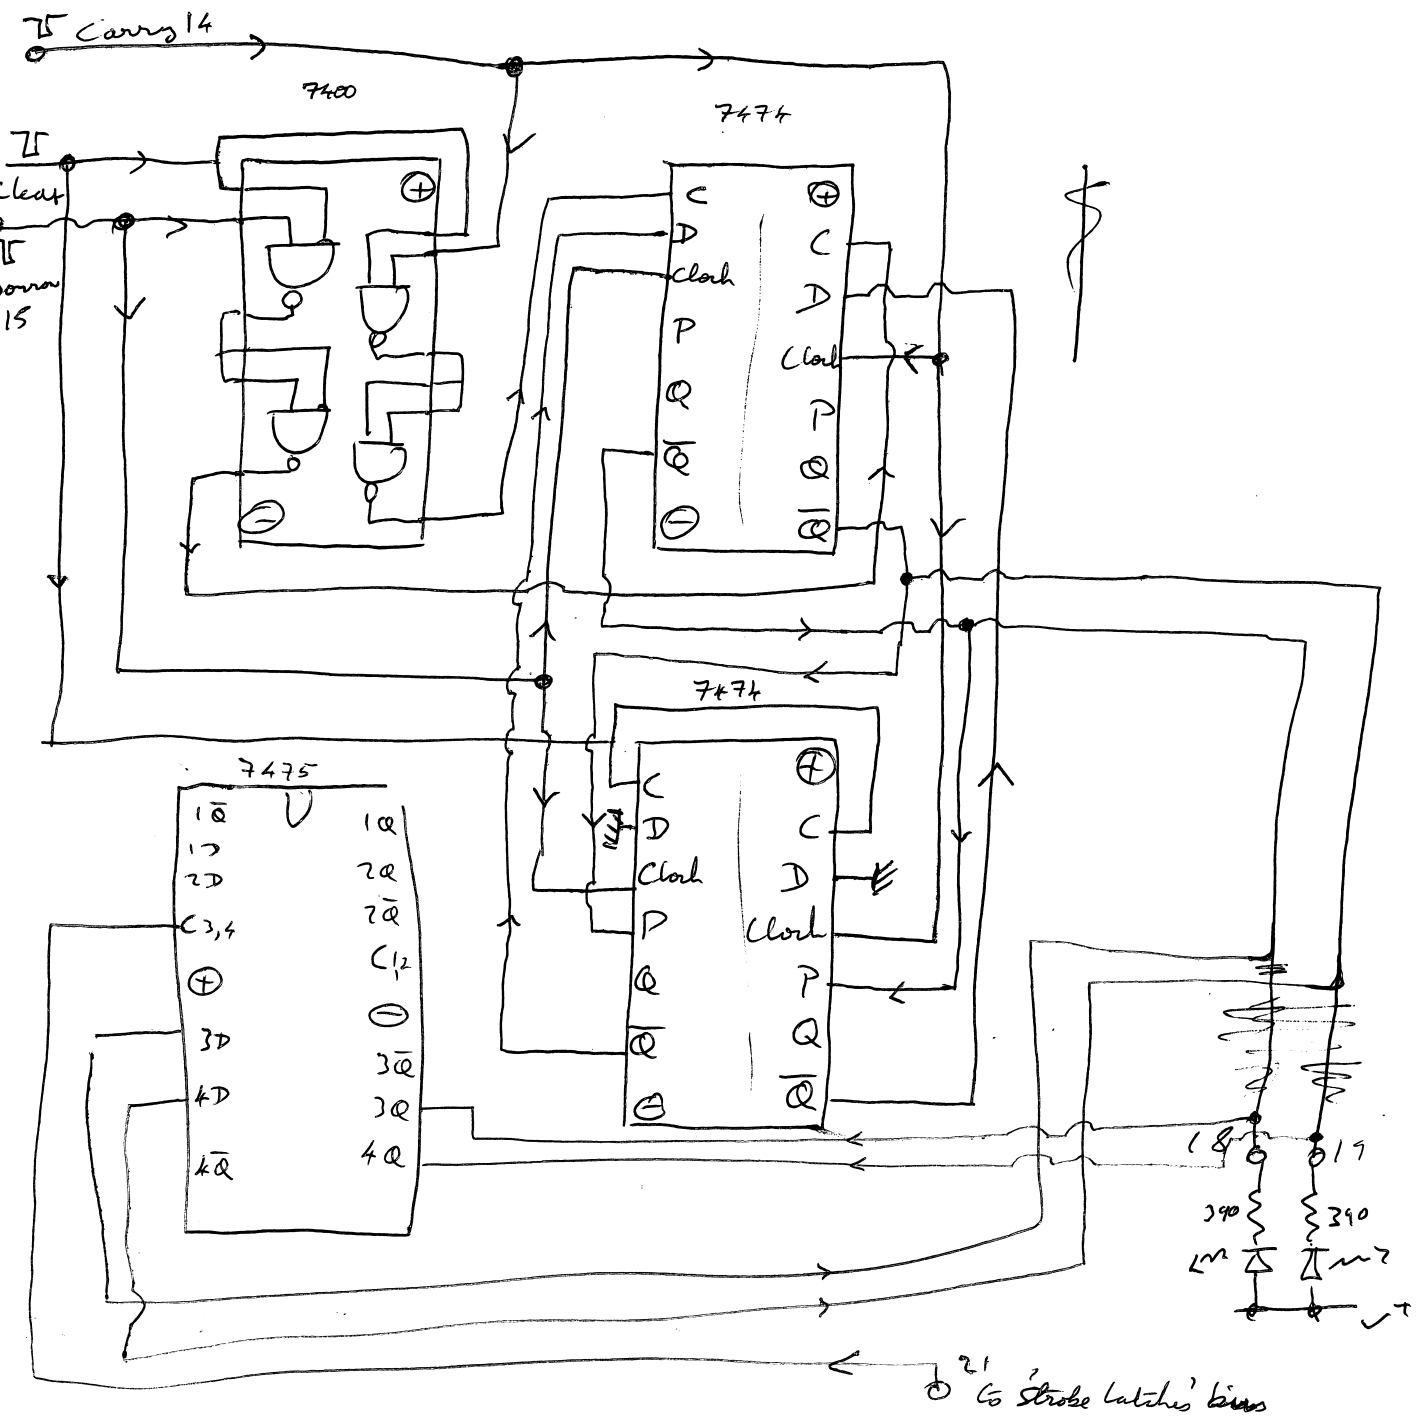 Carry 14
7400
7474
Clear
15
+
−
C
D
Clock
P
Q
Q̅
−
+
C
D
Clock
P
Q
Q̅
7474
C
D
Clock
P
Q
Q̅
−
+
C
D
Clock
P
Q
Q̅
7475
1Q̅
1D
2D
C3,4
+
3D
4D
4Q̅
1Q
2Q
2Q̅
C1,2
−
3Q̅
3Q
4Q
18
19
390
390
V+
21
to 'strobe latches'